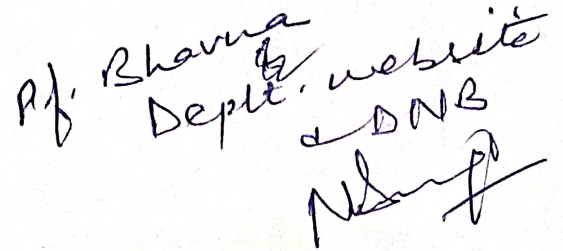 Pf. Bhavna
Deptt. website
& DNB